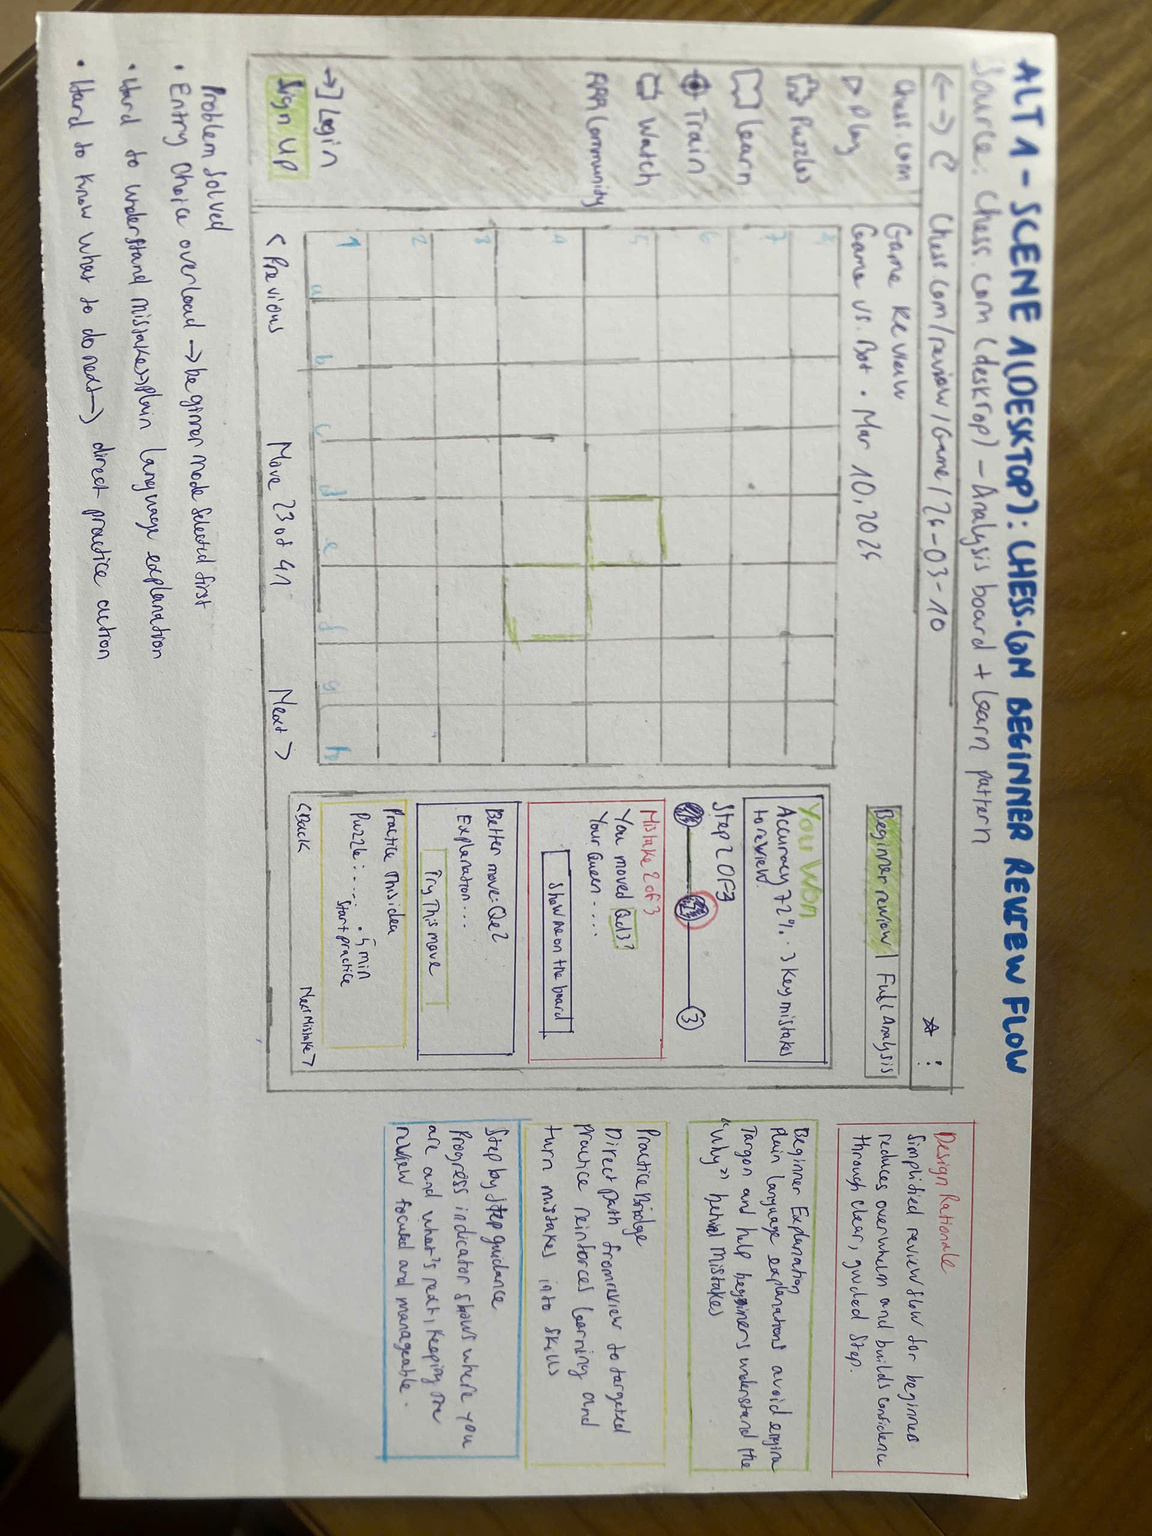 ALT 1 - SCENE 1(DESKTOP): CHESS.COM BEGINNER REVIEW FLOW
Source: Chess.com (desktop) - Analysis board + learn pattern
Chess.com/review/Game/26-03-10
Chess.com
Play
Puzzles
Learn
Train
Watch
Community
Login
Sign Up
Game Review
Game vs. Bot • Mar 10, 2026
8
7
6
5
4
3
2
1
a
b
c
d
e
f
g
h
< Previous
Move 23 of 41
Next >
Beginner review | Full Analysis
You Won
Accuracy 72% · 3 key mistakes
to review
Step 2 OF 3
3
Mistake 2 of 3
You moved Qd3?
Your Queen ....
Show me on the board
Better move: Qe2
Explanation...
Try This move
Practice This idea
Puzzle: .... • 5 min
Start practice
<Back
Next Mistake >
Design Rationale
Simplified review flow for beginners
reduces overwhelm and builds confidence
through clear, guided step.
Beginner Explanation
Plain language explanations avoid engine
Targon and help beginners understand the
"Why" behind Mistakes
Practice Bridge
Direct path from review to targeted
practice reinforces learning and
turn mistakes into skills
Step by step guidance
Progress indicator shows where you
are and what's next, keeping the
review focused and manageable.
Problem Solved
• Entry Choice overload → beginner mode selected first
• Hard to understand mistakes → plain language explanation
• Hard to know what to do next → direct practice action